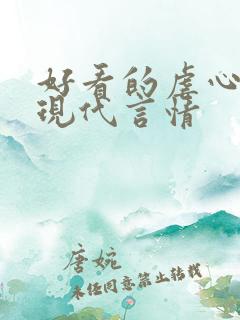 好看的虐心
現代言情
唐婉
未经同意禁止转载